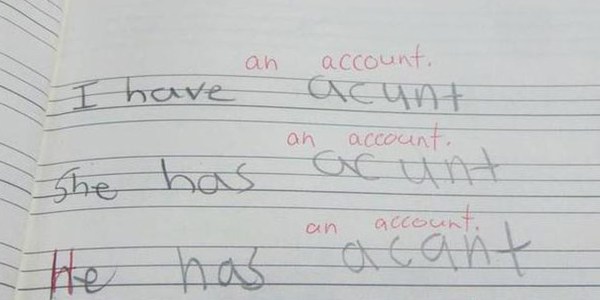 an account.
I have acunt
an account.
She has acunt
an account.
He has acant